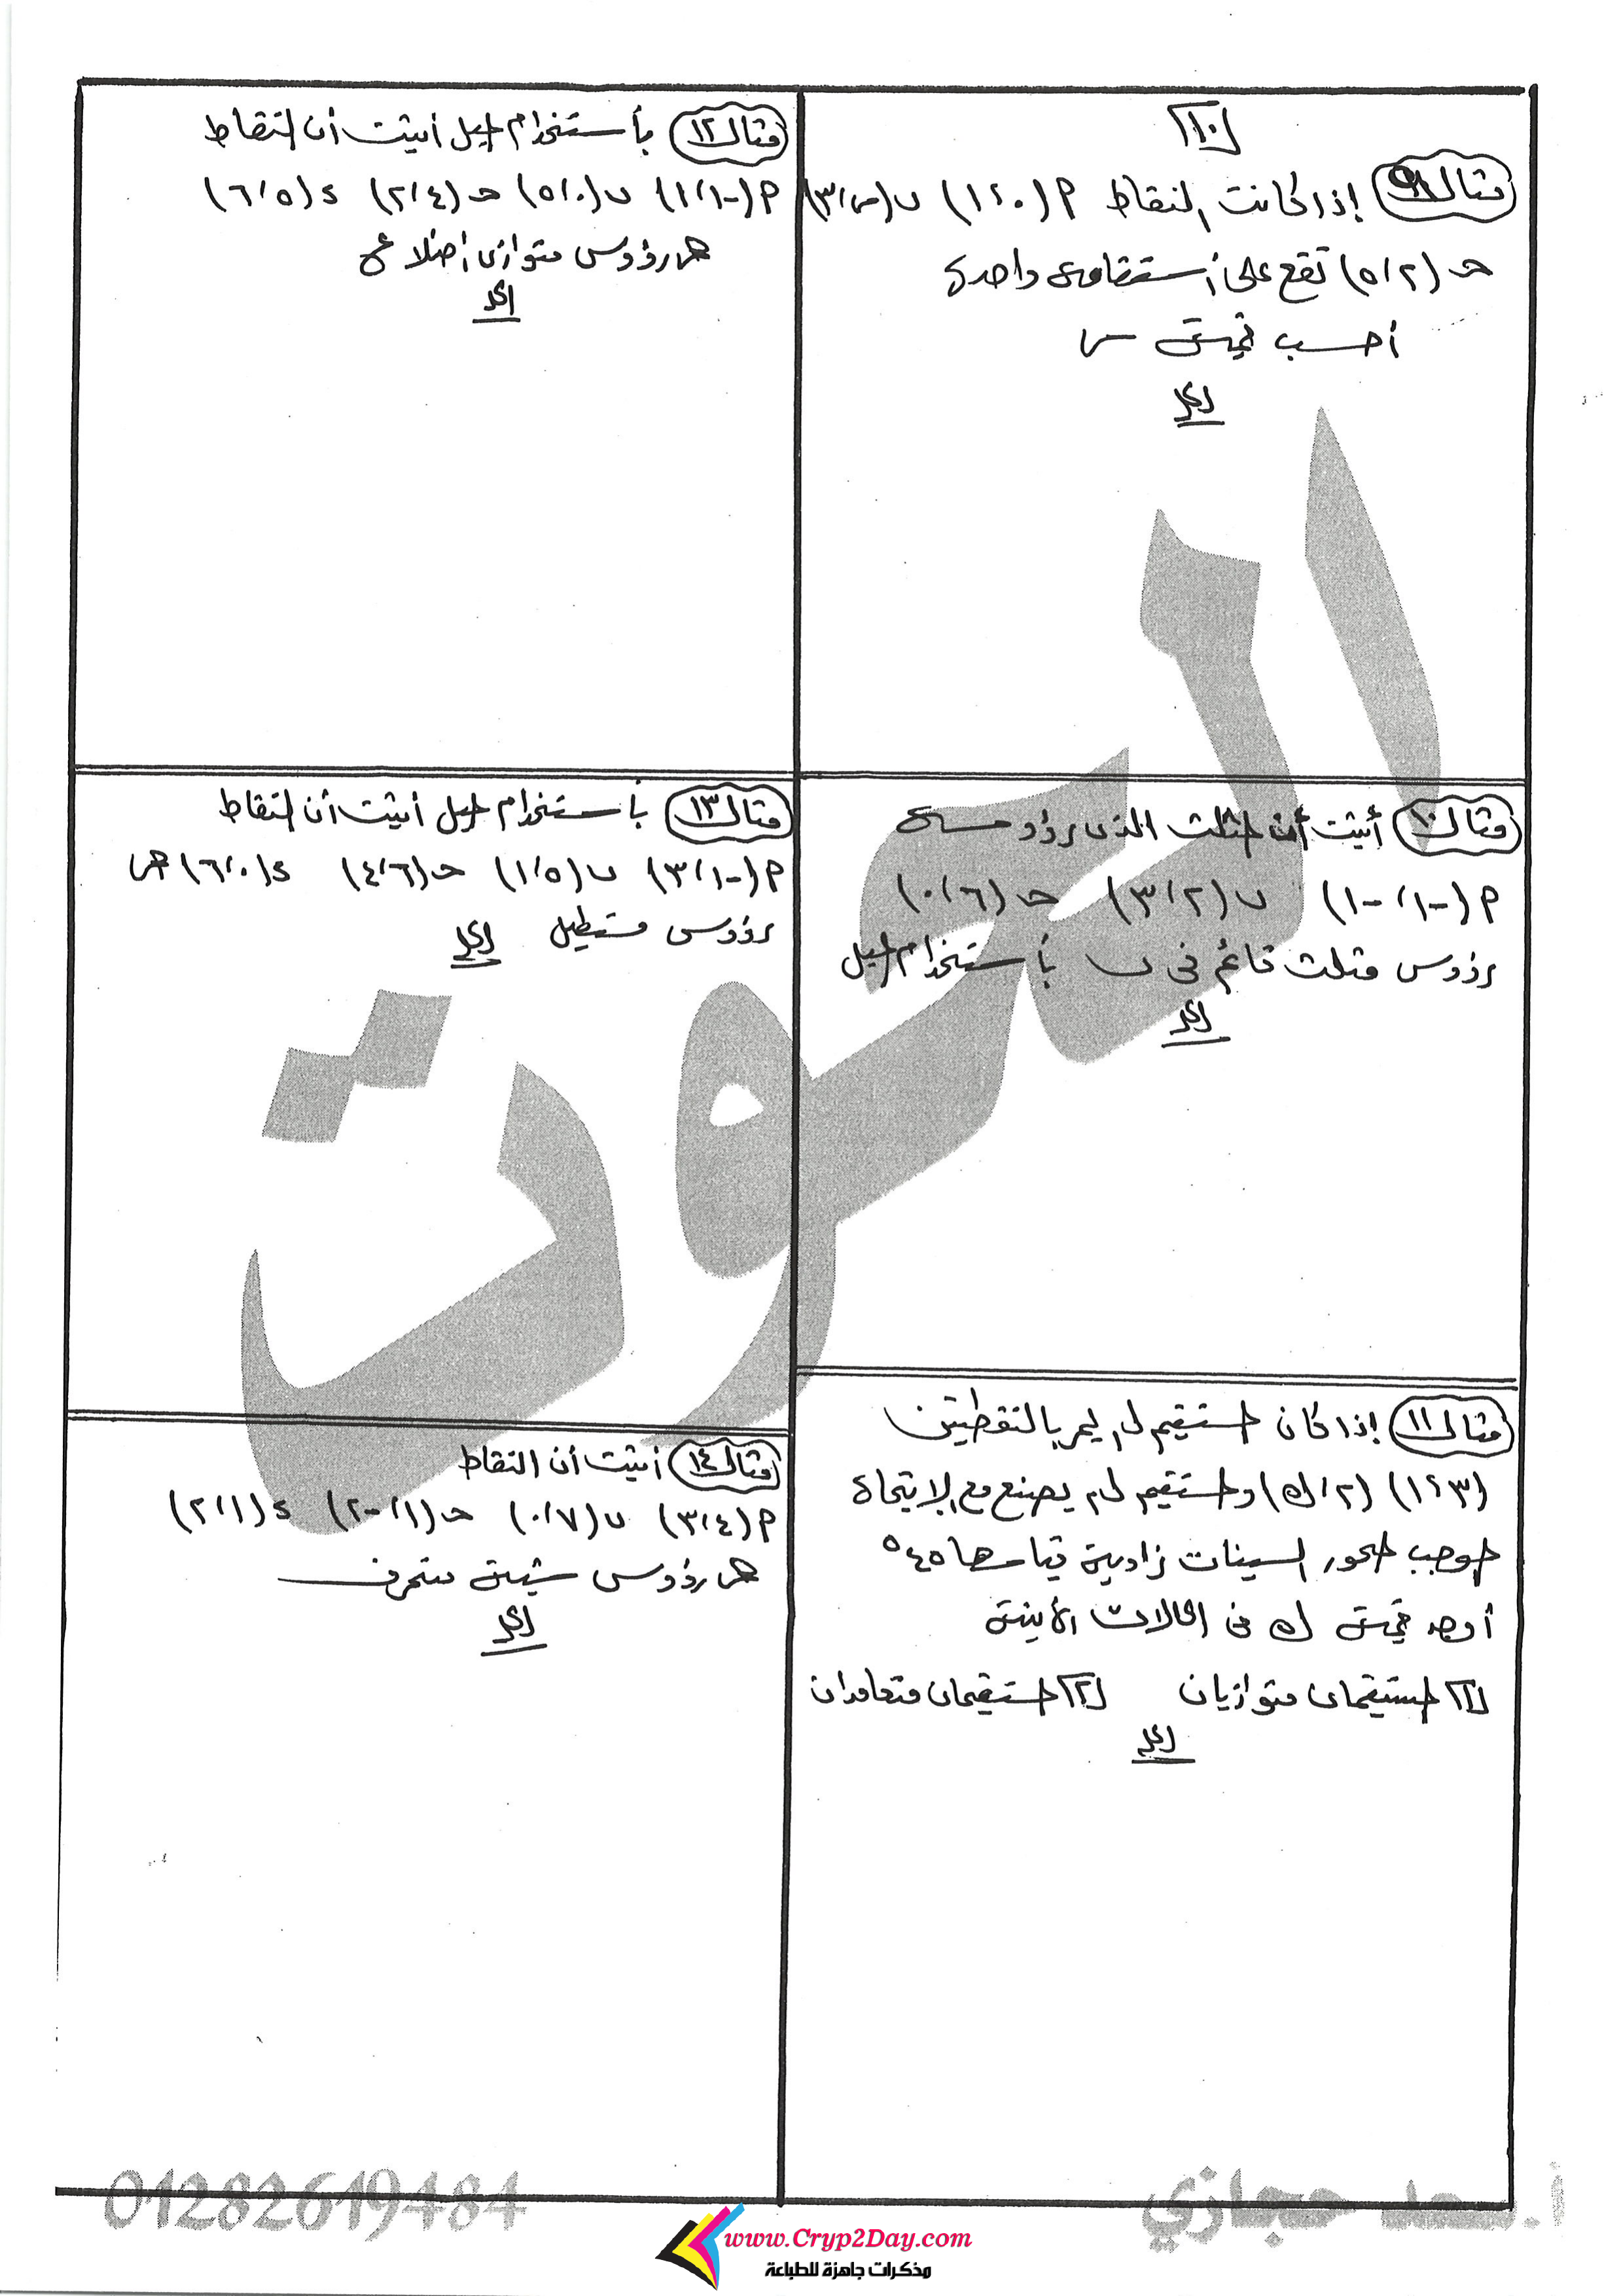 [١٠]
مثال ٩ إذا كانت النقاط م (٠، ١) ب (س، ٣)
حـ (٢، ٥) تقع على أستقامة واحدة
أحسب قيمة س
الحل
مثال ١٠ أثبت أن المثلث الذى رؤوسة
م (-١، -١) ب (٢، ٣) حـ (٦، ٠)
رؤوس مثلث قائم فى ب بأستخدام الميل
الحل
مثال ١١ إذا كان المستقيم ل١ يمر بالنقطتين
(٣، ١) (٢، ك) والمستقيم ل٢ يصنع مع الإتجاة
الموجب لمحور السينات زاوية قياسها ٤٥°
أوجد قيمة ك فى الحالات الأتية
[١] المستقيمان متوازيان [٢] المستقيمان متعامدان
الحل
مثال ١٢ بأستخدام الميل أثبت أن النقاط
م (-١، ١) ب (٠، ٥) حـ (٤، ٢) د (٥، ٦)
هى رؤوس متوازى أضلاع
الحل
مثال ١٣ بأستخدام الميل أثبت أن النقاط
م (-١، ٣) ب (٥، ١) حـ (٦، ٤) د (٠، ٦) هى
رؤوس مستطيل الحل
مثال ١٤ أثبت أن النقاط
م (٤، ٣) ب (٧، ٠) حـ (١، -٢) د (١، ٢)
هى رؤوس شبة منحرف
الحل
الصوت
01282619484
حجازي
www.Cryp2Day.com
مذكرات جاهزة للطباعة